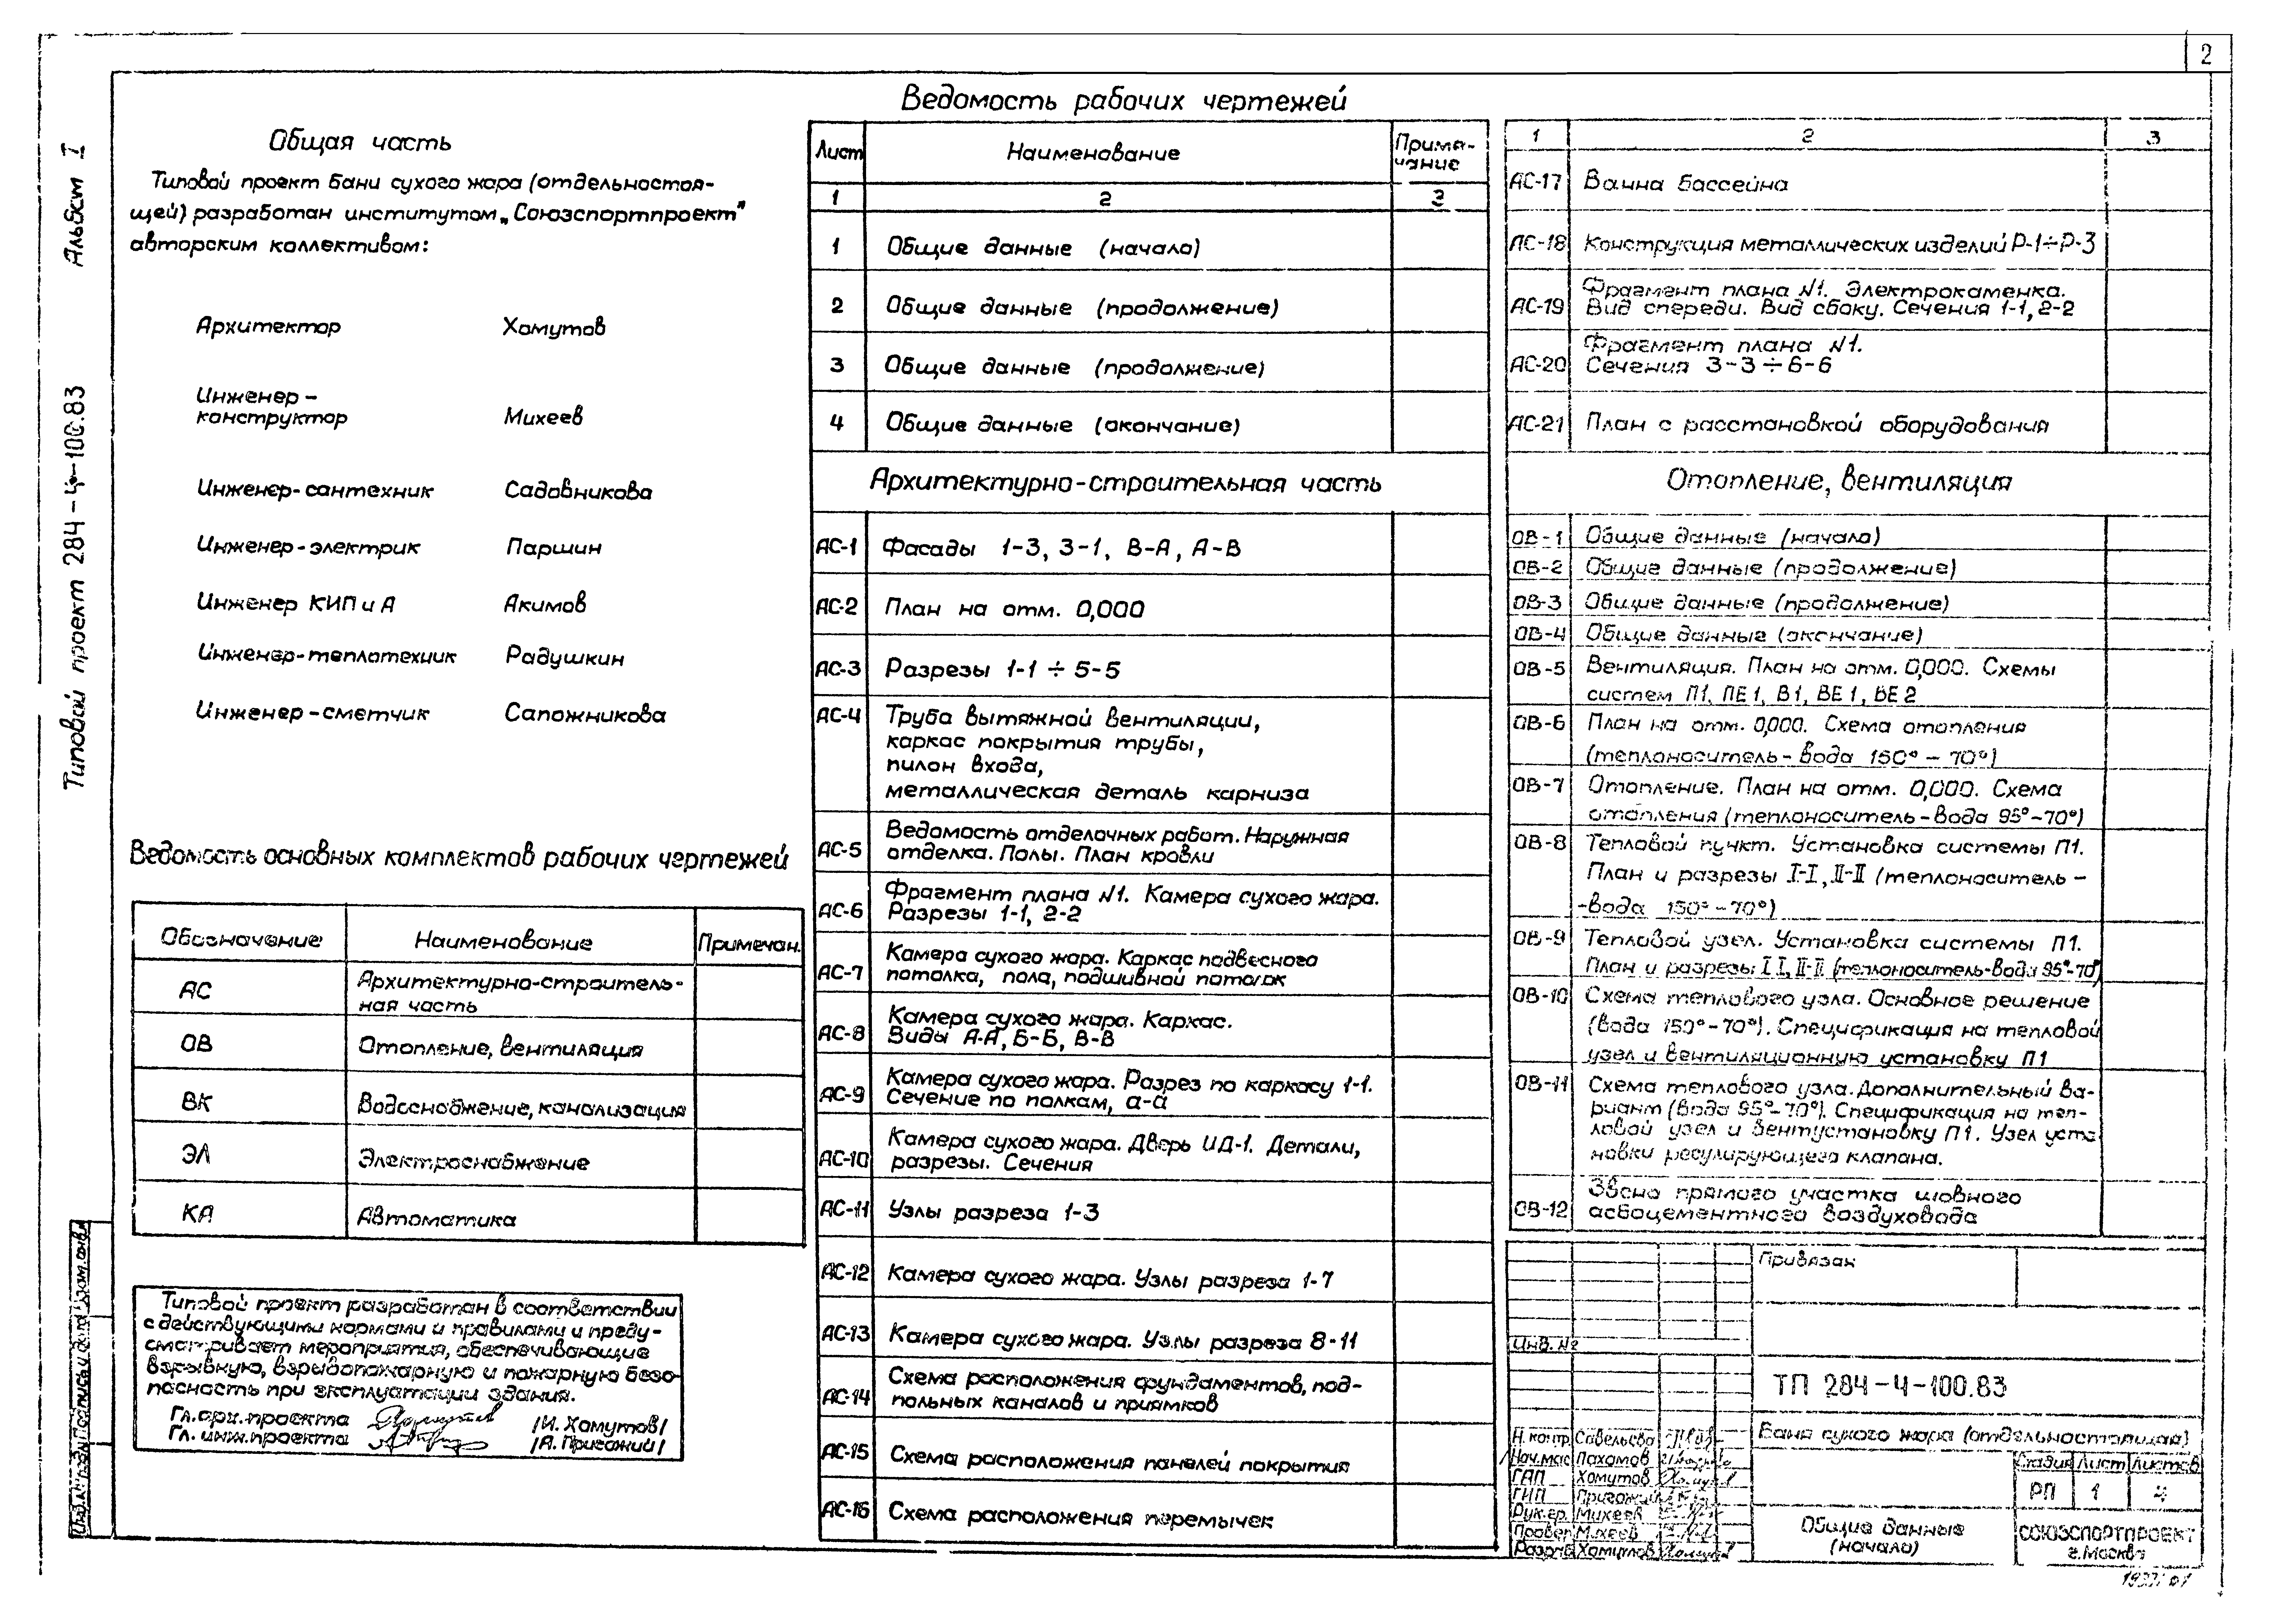 2
Альбом I
Типовой проект 284-4-100.83
Общая часть
Типовой проект бани сухого жара (отдельностоя-
щей) разработан институтом „Союзспортпроект"
авторским коллективом:
Архитектор Хомутов
Инженер-
конструктор Михеев
Инженер-сантехник Садовникова
Инженер-электрик Паршин
Инженер КИП и А Акимов
Инженер-теплотехник Радушкин
Инженер-сметчик Сапожникова
Ведомость основных комплектов рабочих чертежей
Обозначение Наименование Примечан.
АС Архитектурно-строитель-
ная часть
ОВ Отопление, вентиляция
ВК Водоснабжение, канализация
ЭЛ Электроснабжение
КА Автоматика
Типовой проект разработан в соответствии
с действующими нормами и правилами и преду-
сматривает мероприятия, обеспечивающие
взрывную, взрывопожарную и пожарную безо-
пасность при эксплуатации здания.
Гл. арх. проекта /И. Хомутов/
Гл. инж. проекта /А. Пригожий/
Ведомость рабочих чертежей
Лист Наименование Приме-
чание
1 2 3
1 Общие данные (начало)
2 Общие данные (продолжение)
3 Общие данные (продолжение)
4 Общие данные (окончание)
Архитектурно-строительная часть
АС-1 Фасады 1-3, 3-1, В-А, А-В
АС-2 План на отм. 0,000
АС-3 Разрезы 1-1 ÷ 5-5
АС-4 Труба вытяжной вентиляции,
каркас покрытия трубы,
пилон входа,
металлическая деталь карниза
АС-5 Ведомость отделочных работ. Наружная
отделка. Полы. План кровли
АС-6 Фрагмент плана №1. Камера сухого жара.
Разрезы 1-1, 2-2
АС-7 Камера сухого жара. Каркас подвесного
потолка, пола, подшивной потолок
АС-8 Камера сухого жара. Каркас.
Виды А-А, Б-Б, В-В
АС-9 Камера сухого жара. Разрез по каркасу 1-1.
Сечение по полкам, а-а
АС-10 Камера сухого жара. Дверь ИД-1. Детали,
разрезы. Сечения
АС-11 Узлы разреза 1-3
АС-12 Камера сухого жара. Узлы разреза 1-7
АС-13 Камера сухого жара. Узлы разреза 8-11
АС-14 Схема расположения фундаментов, под-
польных каналов и приямков
АС-15 Схема расположения панелей покрытия
АС-16 Схема расположения перемычек
1 2 3
АС-17 Ванна бассейна
АС-18 Конструкция металлических изделий Р-1÷Р-3
АС-19 Фрагмент плана №1. Электрокаменка.
Вид спереди. Вид сбоку. Сечения 1-1, 2-2
АС-20 Фрагмент плана №1.
Сечения 3-3 ÷ 6-6
АС-21 План с расстановкой оборудования
Отопление, вентиляция
ОВ-1 Общие данные (начало)
ОВ-2 Общие данные (продолжение)
ОВ-3 Общие данные (продолжение)
ОВ-4 Общие данные (окончание)
ОВ-5 Вентиляция. План на отм. 0,000. Схемы
систем П1, ПЕ1, В1, ВЕ1, ВЕ2
ОВ-6 План на отм. 0,000. Схема отопления
(теплоноситель-вода 150°-70°)
ОВ-7 Отопление. План на отм. 0,000. Схема
отопления (теплоноситель-вода 95°-70°)
ОВ-8 Тепловой пункт. Установка системы П1.
План и разрезы I-I, II-II (теплоноситель-
-вода 150°-70°)
ОВ-9 Тепловой узел. Установка системы П1.
План и разрезы I I, II-II (теплоноситель-вода 95°-70°)
ОВ-10 Схема теплового узла. Основное решение
(вода 150°-70°). Спецификация на тепловой
узел и вентиляционную установку П1
ОВ-11 Схема теплового узла. Дополнительный ва-
риант (вода 95°-70°). Спецификация на теп-
ловой узел и вентустановку П1. Узел уста-
новки регулирующего клапана.
ОВ-12 Звено прямого участка шовного
асбоцементного воздуховода
Привязан
Инв. №
ТП 284-4-100.83
Баня сухого жара (отдельностоящая)
Н. контр. Савельева
Нач. мас. Пахомов
ГАП Хомутов
ГИП Пригожий
Рук. гр. Михеев
Провер. Михеев
Разраб. Хомутов
Стадия Лист Листов
РП 1 4
Общие данные
(начало)
СОЮЗСПОРТПРОЕКТ
г. Москва